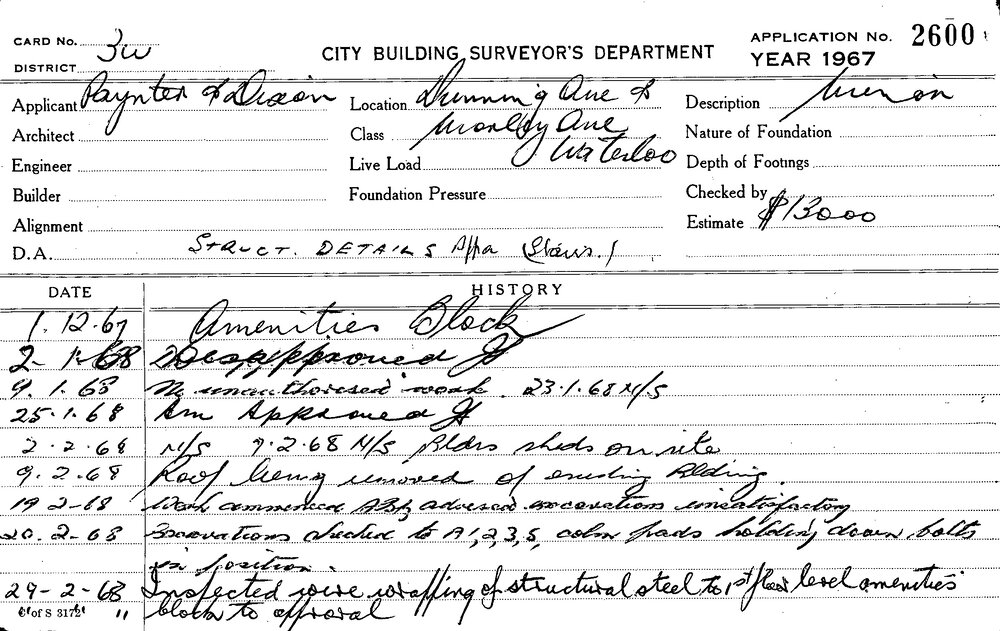 CARD No. 3w
CITY BUILDING SURVEYOR'S DEPARTMENT
APPLICATION No. 2600
DISTRICT
YEAR 1967
Applicant Paynter & Dixon
Location Dunning Ave &
Description
Architect
Class Morley Ave
Nature of Foundation
Engineer
Live Load Waterloo
Depth of Footings
Builder
Foundation Pressure
Checked by
Alignment
Estimate $13000
D.A. STRUCT. DETAILS Appd
DATE
HISTORY
1.12.67 Amenities Block
2-1-68 Disapproved
9.1.68 No unauthorised work. 23.1.68 N/S
25.1.68 Am Approved
2.2.68 N/S 7.2.68 N/S Bldrs sheds on site
9.2.68 Roof being removed of existing Blding.
19-2-68 Work commenced advised excavations unsatisfactory
20.2-68 Excavations checked to A1,2,3,5, colm pads holding down bolts
in position.
29-2-68 Inspected wire wrapping of structural steel to 1st floor level amenities
of S 3172 " block to approval